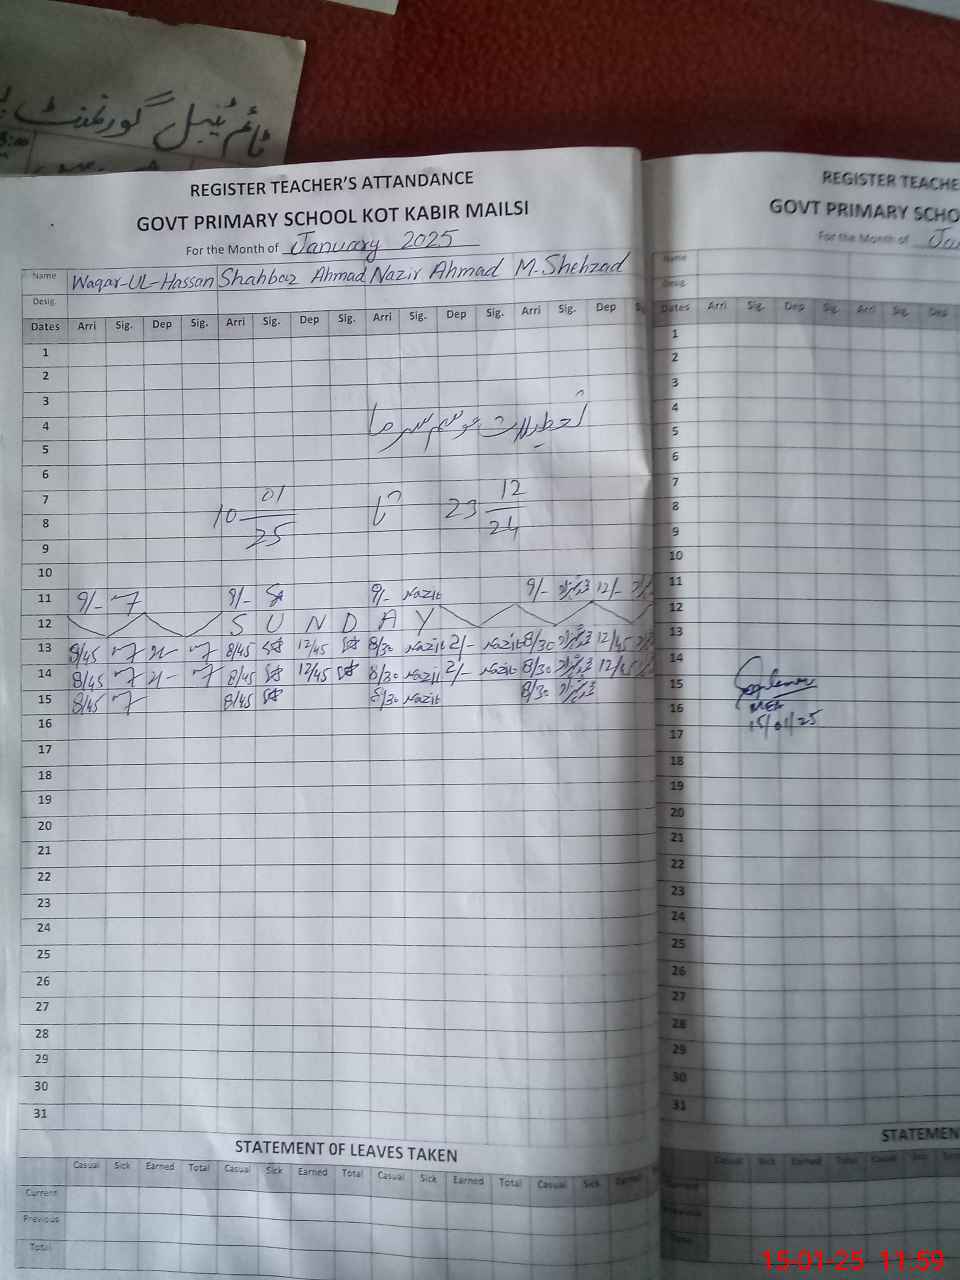 ٹائم ٹیبل گورنمنٹ
REGISTER TEACHER'S ATTANDANCE
GOVT PRIMARY SCHOOL KOT KABIR MAILSI
For the Month of January 2025
Name Waqar-UL-Hassan Shahbaz Ahmad Nazir Ahmad M. Shehzad
Desig.
Dates Arri Sig. Dep Sig. Arri Sig. Dep Sig. Arri Sig. Dep Sig. Arri Sig. Dep
1
2
3
4 تعطیلات موسم سرما
5
6
7
8 10 01/25 تا 23 12/24
9
10
11 9/- 9/- 9/- Nazir 9/- شہزاد 12/-
12 SUNDAY
13 8/45 8/45 12/45 8/30 Nazir 2/- Nazir 8/30 شہزاد 12/45
14 8/45 8/45 12/45 8/30 Nazir 2/- Nazir 8/30 شہزاد 12/45
15 8/45 8/45 8/30 Nazir 8/30 شہزاد
16
17
18
19
20
21
22
23
24
25
26
27
28
29
30
31
STATEMENT OF LEAVES TAKEN
Casual Sick Earned Total Casual Sick Earned Total Casual Sick Earned Total Casual Sick Earned
Current
Previous
Total
REGISTER TEACHE
GOVT PRIMARY SCHO
For the Month of Ja
Name
Desig.
Dates Arri Sig. Dep Sig. Arri Sig. Dep
1
2
3
4
5
6
7
8
9
10
11
12
13
14
15
16
15/01/25
17
18
19
20
21
22
23
24
25
26
27
28
29
30
31
STATEMEN
Casual Sick Earned Total Casual Sick
Current
Previous
Total
15-01-25 11:59